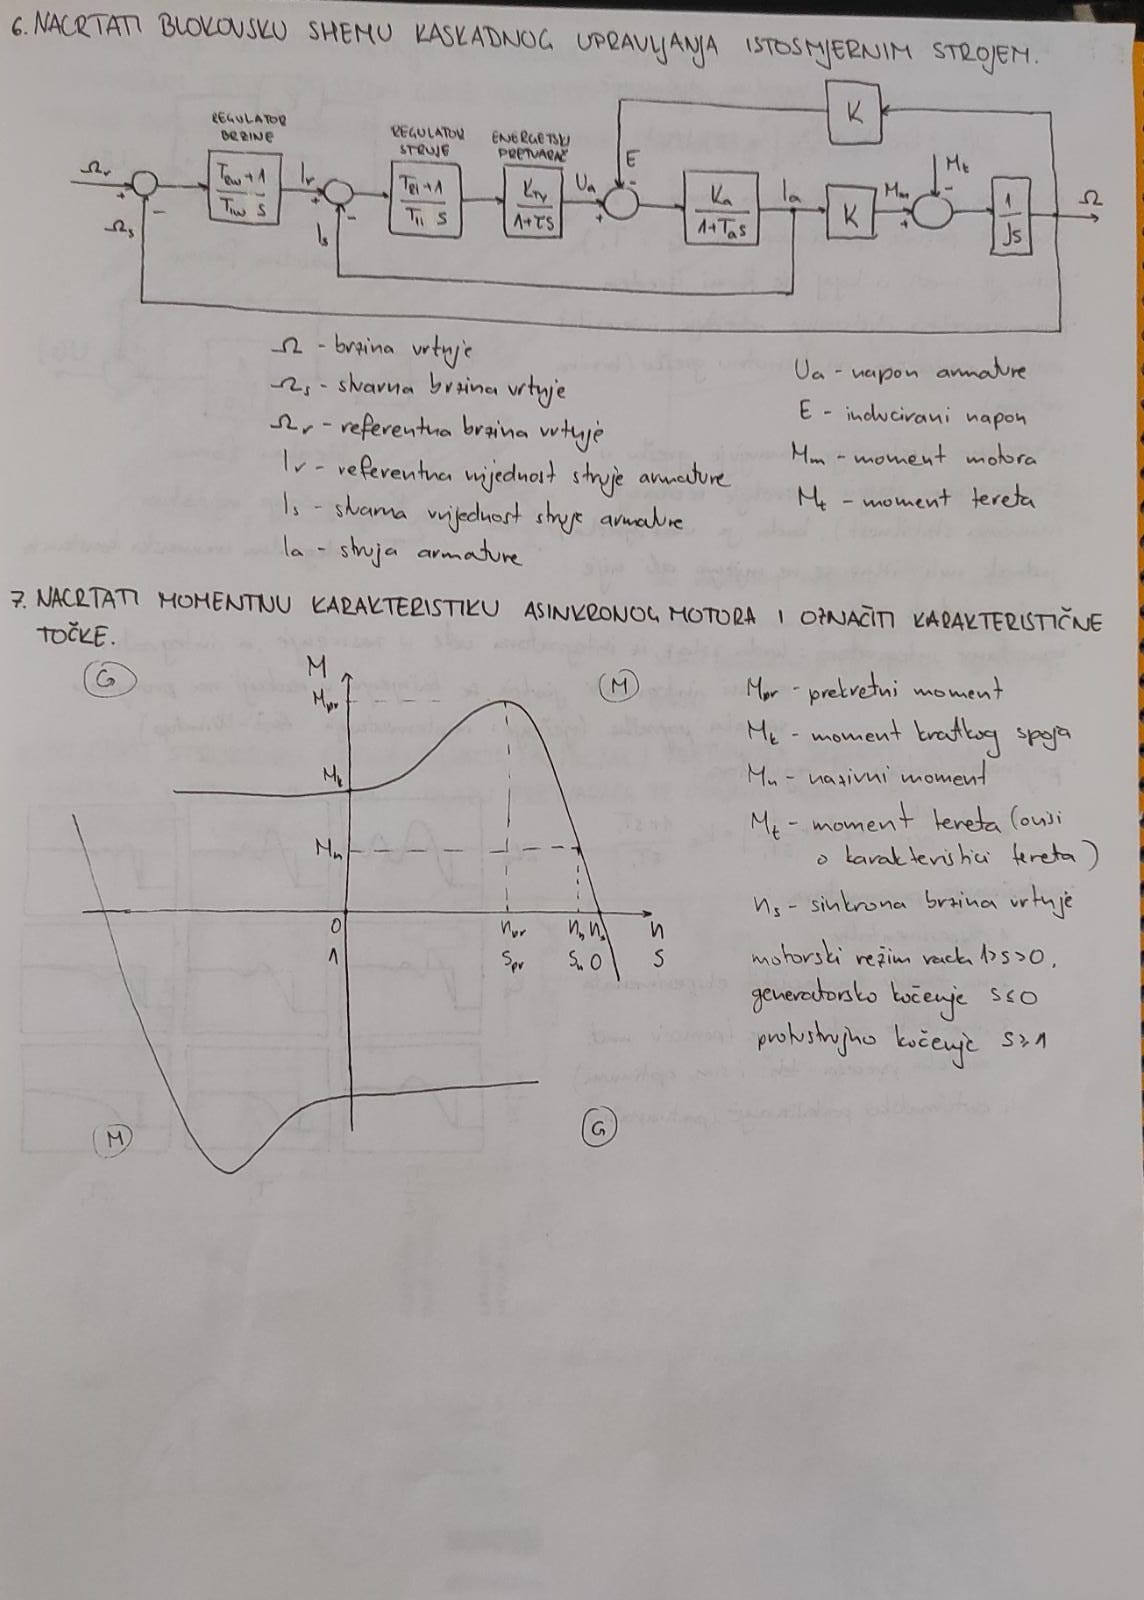 6. NACRTATI BLOKOVSKU SHEMU KASKADNOG UPRAVLJANJA ISTOSMJERNIM STROJEM.
REGULATOR BRZINE
REGULATOR STRUJE
ENERGETSKI PRETVARAČ
K
E
Mt
Ωr
+
-
Ωs
Ir
+
-
Is
Ua
+
-
Ia
K
Mm
+
-
1
Js
Ω
KTV
1+τS
Ka
1+Tas
Ω - brzina vrtnje
Ωs - stvarna brzina vrtnje
Ωr - referentna brzina vrtnje
Ir - referentna vrijednost struje armature
Is - stvarna vrijednost struje armature
Ia - struja armature
Ua - napon armature
E - inducirani napon
Mm - moment motora
Mt - moment tereta
7. NACRTATI MOMENTNU KARAKTERISTIKU ASINKRONOG MOTORA I OZNAČITI KARAKTERISTIČNE
TOČKE.
G
M
M
Mpr
Mk
Mn
0
npr
nn
ns
n
1
Spr
Sn
0
S
M
G
Mpr - prekretni moment
Mk - moment kratkog spoja
Mn - nazivni moment
Mt - moment tereta (ovisi
o karakteristici tereta)
ns - sinkrona brzina vrtnje
motorski režim rada 1>s>0,
generatorsko kočenje S≤0
protustrujno kočenje S≥1